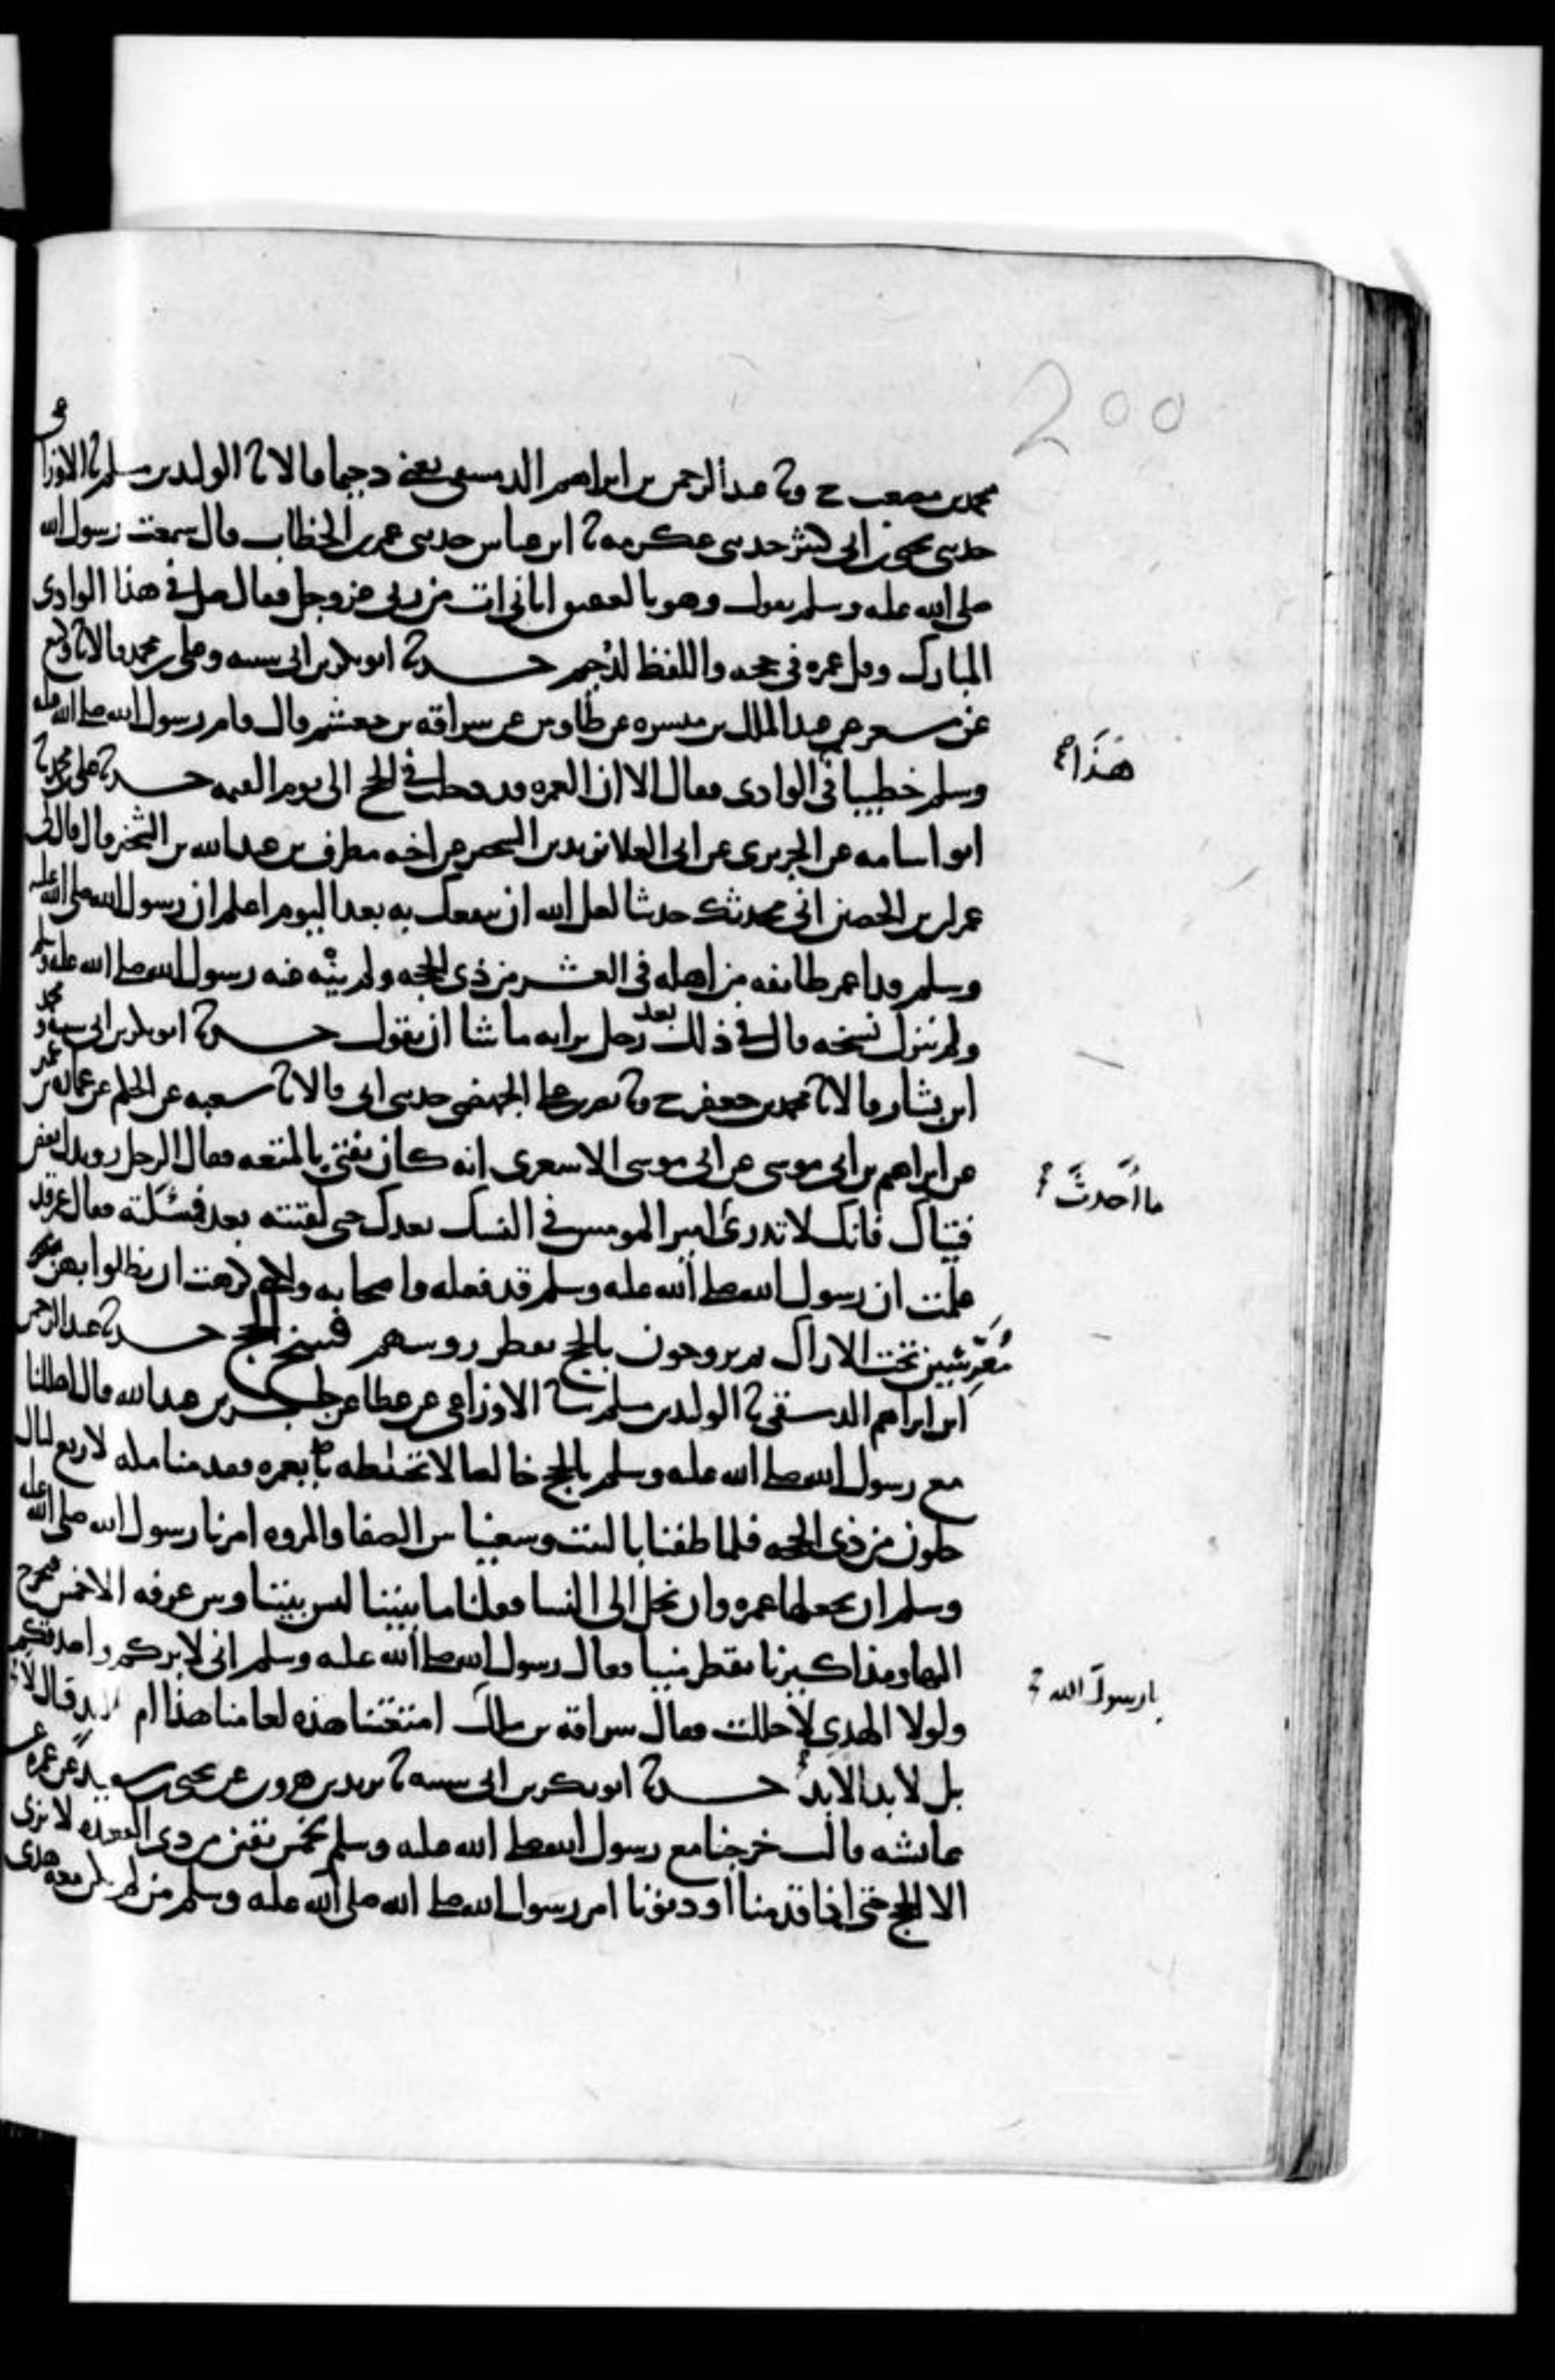 200
محمد بن مصعب ح وثا عبد الرحمن بن ابراهيم الدمشقي يعني دحيما قالا ثا الوليد بن مسلم ثا الاوزاعي
حدثني يحيى بن ابي كثير حدثني عكرمه ثا ابن عباس حدثني عمر بن الخطاب قال سمعت رسول الله
صلى الله عليه وسلم يقول وهو بالعقيق اتاني ات من ربي عز وجل فقال صل في هذا الوادي
المبارك وقل عمره في حجه واللفظ لدحيم حدثا ابو بكر بن ابي شيبه وعلي بن محمد قالا ثا وكيع
عن مسعر عن عبد الملك بن ميسره عن طاوس عن سراقه بن جعشم قال قام رسول الله صلى الله عليه
وسلم خطيبا في الوادي فقال الا ان العمره قد دخلت في الحج الى يوم القيمه حدثا علي بن محمد ثا
هذا
ابو اسامه عن الجريري عن ابي العلا يزيد بن الشخير عن اخيه مطرف بن عبد الله بن الشخير قال قال لي
عمران بن الحصين اني محدثك حديثا لعل الله ان ينفعك به بعد اليوم اعلم ان رسول الله صلى الله عليه
وسلم قد اعمر طائفه من اهله في العشر من ذي الحجه ولم ينه عنه رسول الله صلى الله عليه وسلم
ولم ينزل نسخه قال في ذلك بعد رجل برايه ما شا ان يقول حدثا ابو بكر بن ابي شيبه ومحمد
ابن بشار قالا ثا محمد بن جعفر ح وثا نصر بن علي الجهضمي حدثني ابي قالا ثا شعبه عن الحكم عن عماره بن عمير
عن ابراهيم بن ابي موسى عن ابي موسى الاشعري انه كان يفتي بالمتعه فقال الرجل رويدك بعض
فتياك فانك لا تدري امير المومنين في النسك بعدك حتى لقيته بعد فسئلته فقال عمر قد
ما احدث
علمت ان رسول الله صلى الله عليه وسلم قد فعله واصحابه ولكني كرهت ان يظلوا بهن
معرشين تحت الاراك ثم يروحون بالحج تقطر روسهم فسخ الحج حدثا عبد الرحمن
ابن ابراهيم الدمشقي ثا الوليد بن مسلم ثنا الاوزاعي عن عطا عن جابر بن عبد الله قال اهللنا
مع رسول الله صلى الله عليه وسلم بالحج خالصا لا تخلطه بعمره فقدمنا مكه لاربع ليال
خلون من ذي الحجه فلما طفنا بالبيت وسعينا بين الصفا والمروه امرنا رسول الله صلى الله عليه
وسلم ان نجعلها عمره وان نحل الى النسا فقلنا ما بيننا ليس بيننا وبين عرفه الا خمس فنخرج
اليها ومذاكيرنا تقطر منيا فقال رسول الله صلى الله عليه وسلم اني لابركم واصدقكم
ولولا الهدي لاحللت فقال سراقه بن مالك امتعتنا هذه لعامنا هذا ام لابد قال لا
يا رسول الله
بل لابد الابد حدثا ابو بكر بن ابي شيبه ثا يزيد بن هرون عن يحيى بن سعيد عن عمره عن
عائشه قالت خرجنا مع رسول الله صلى الله عليه وسلم لخمس بقين من ذي القعده لا نرى
الا الحج حتى اذا قدمنا او دنونا امر رسول الله صلى الله صلى الله عليه وسلم من لم يكن معه هدي